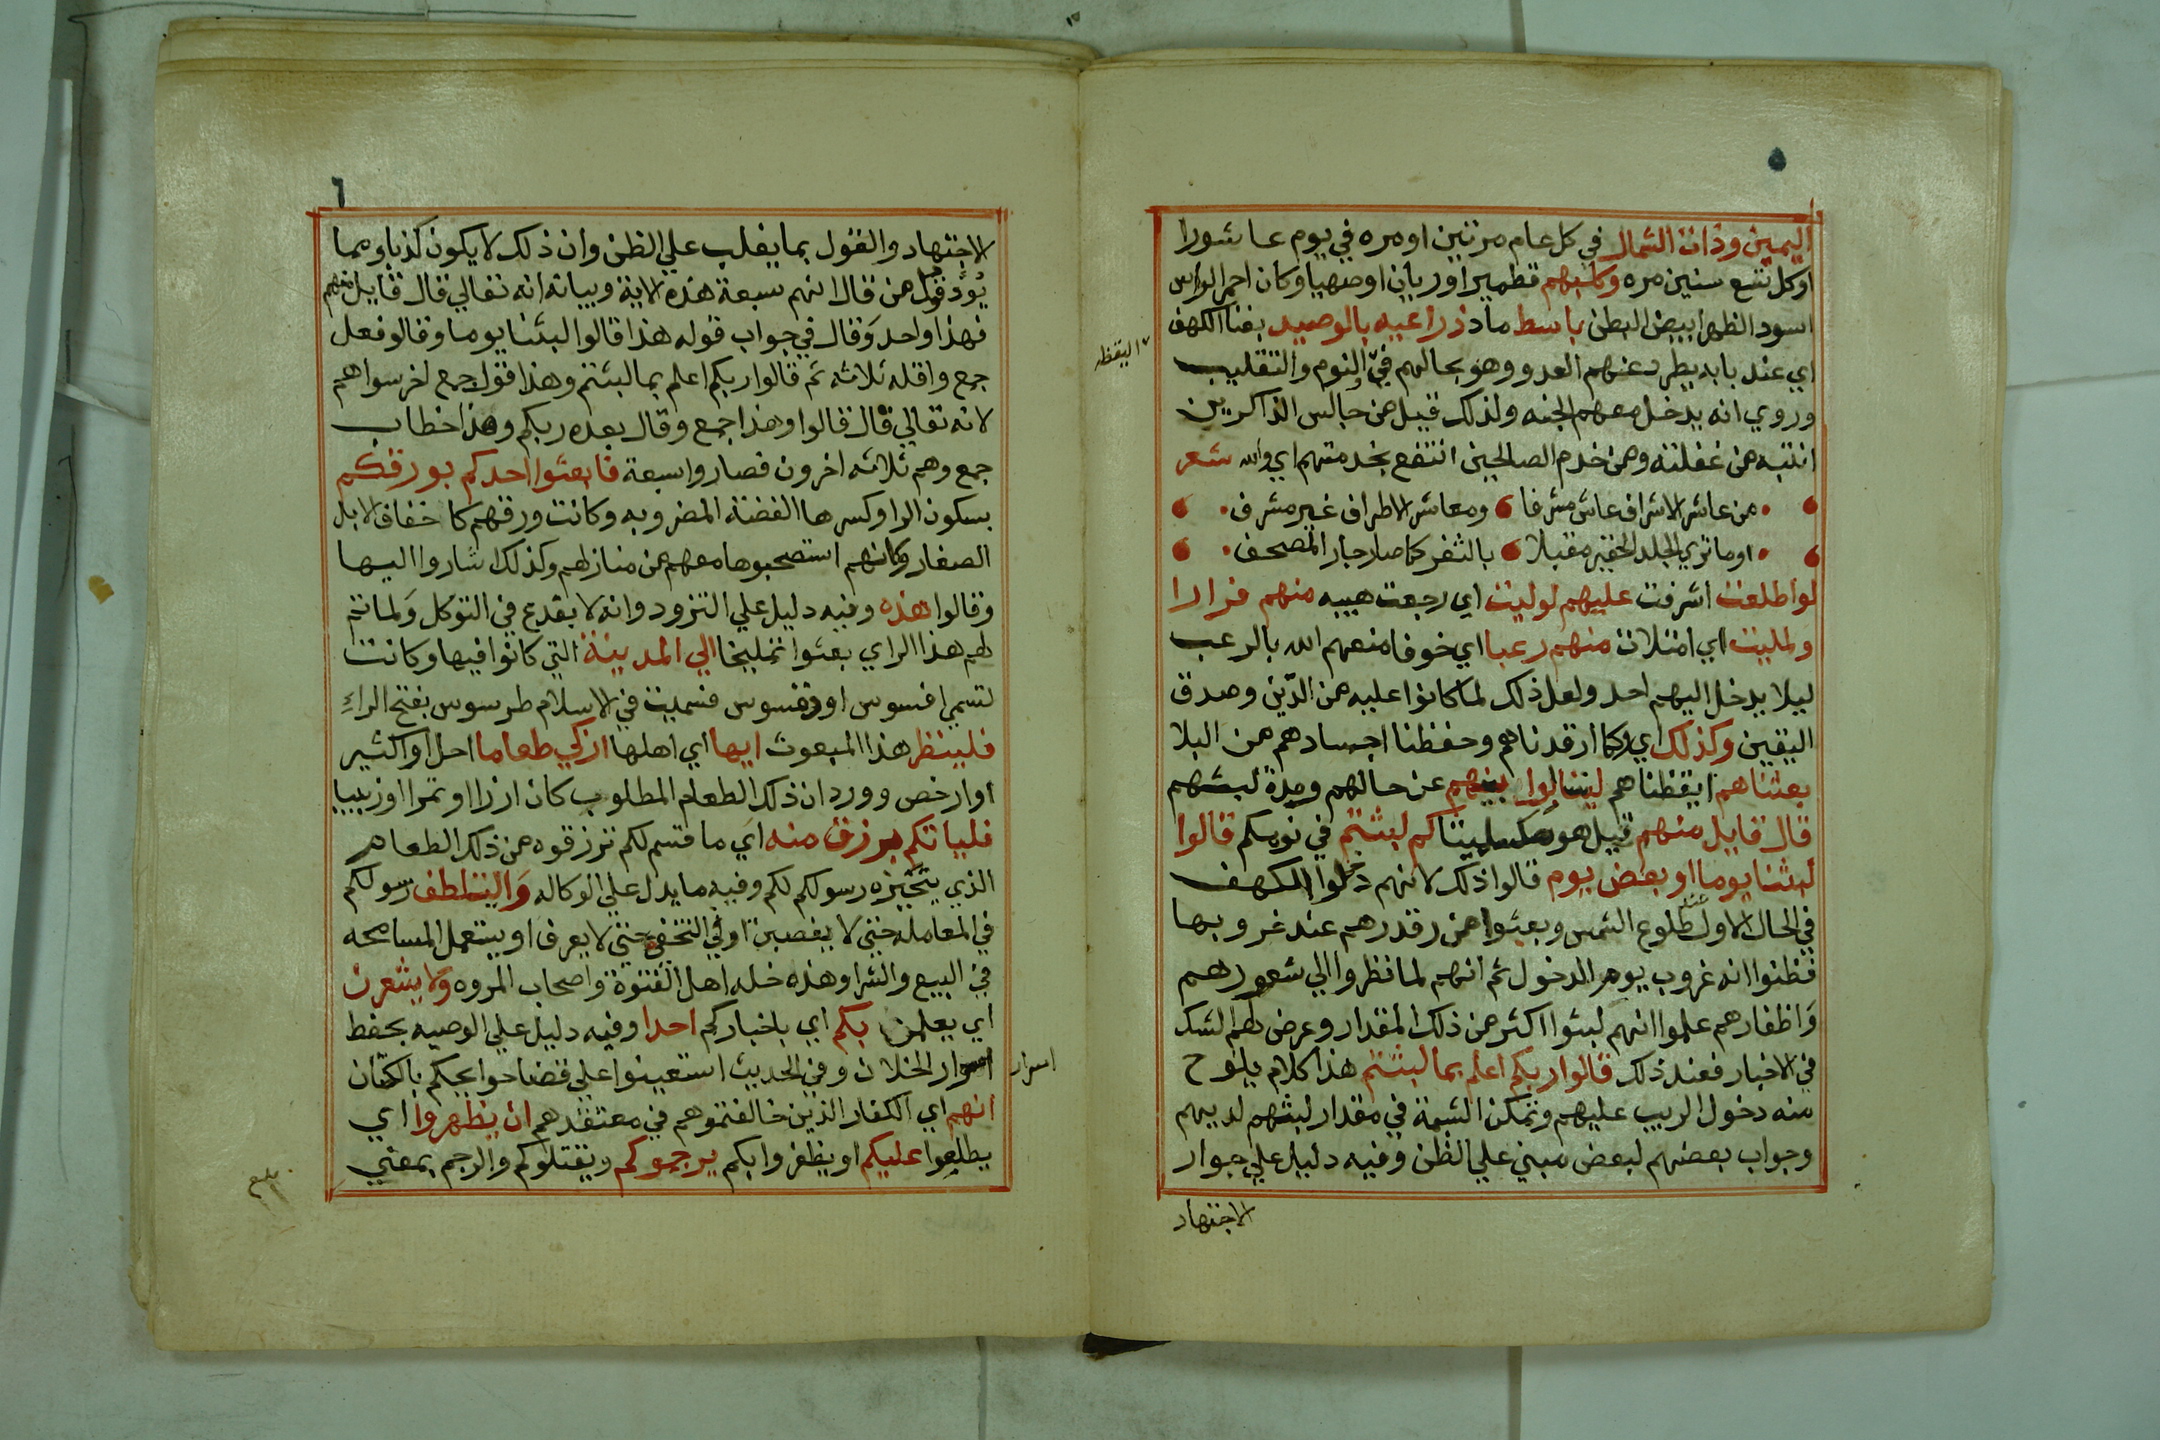 اليمين وذات الشمال في كل عام مرتين او مره في يوم عاشورا
او كل تسع سنين مره وكلبهم قطميرا او ريان او صهيبا وكان احمر الراس
اسود الظهر ابيض البطن باسط ماد ذراعيه بالوصيد بفنا الكهف
اي عند بابه يطرد عنهم العدو وهو بحالهم في النوم والتقليب
اليقظه
وروي انه يدخل معهم الجنه ولذلك قيل من جالس الذاكرين
انتبه من غفلته ومن خدم الصالحين انتفع بخدمتهم اي والله شعر
من عاشر الاشراف عاش مشرفا ومعاشر الاطراف غير مشرف
اوما تري الجلد الحقير مقبلا بالثغر كما صار جار المصحف
لو اطلعت اشرفت عليهم لوليت اي رجعت هيبه منهم فرارا
ولمليت اي امتلات منهم رعبا اي خوفا منعهم الله بالرعب
ليلا يدخل اليهم احد ولعل ذلك لما كانوا عليه من الدين وصدق
اليقين وكذلك اي وكما ارقدناهم وحفظنا اجسادهم من البلا
بعثناهم ايقظناهم ليتسالوا بينهم عن حالهم ومدة لبثهم
قال قايل منهم قيل هو مكسلمينا كم لبثتم في نومكم قالوا
لبثنا يوما او بعض يوم قالوا ذلك لانهم دخلوا الكهف
في الحال الاول طلوع الشمس وبعثوا من رقدرهم عند غروبها
فظنوا انه غروب يوم الدخول ثم انهم لما نظروا الي شعورهم
واظفارهم علموا انهم لبثوا اكثر من ذلك المقدار وعرض لهم الشك
في الاخبار فعند ذلك قالوا ربكم اعلم بما لبثتم هذا كلام يلوح
منه دخول الريب عليهم وتمكن الشبهة في مقدار لبثهم لديهم
وجواب بعضهم لبعض مبني علي الظن وفيه دليل علي جواز
الاجتهاد
٦
الاجتهاد والقول بما يغلب علي الظن وان ذلك لا يكون كذبا ومما
يؤد قول من قال انهم سبعة هذه الاية وبيانه انه تعالي قال قايل منهم
فهذا واحد وقال في جواب قوله هذا قالوا لبثنا يوما وقالو فعل
جمع واقله ثلاثه ثم قالوا ربكم اعلم بما لبثتم وهذا قول جمع اخر سواهم
لانه تعالي قال قالوا وهذا جمع وقال بعده ربكم وهذا خطاب
جمع وهم ثلاثه اخرون فصاروا سبعة فابعثوا احدكم بورقكم
بسكون الرا وكسرها الفضة المضروبه وكانت ورقهم كاخفاف الابل
الصغار وكانهم استصحبوها معهم من منازلهم وكذلك اشاروا اليها
وقالوا هذه وفيه دليل علي التزود وانه لا يقدح في التوكل ولما تم
لهم هذا الراي بعثوا تمليخا الي المدينة التي كانوا فيها وكانت
تسمي افسوس او دفسوس فسميت في الاسلام طرسوس بفتح الراء
فلينظر هذا المبعوث ايها اي اهلها ازكي طعاما احل او اكثير
او ارخص وورد ان ذلك الطعام المطلوب كان ارزا او تمرا او زبيبا
فلياتكم برزق منه اي ما قسم لكم ترزقوه من ذلك الطعام
الذي يتخيزه رسولكم لكم وفيه ما يدل علي الوكاله وليتلطف رسولكم
في المعامله حتي لا يغصبن او في التخفي حتي لا يعرف او يستعمل المسامحه
في البيع والشرا وهذه خله اهل الفتوة واصحاب المروه ولا يشعرن
اي يعلمن بكم اي باخباركم احدا وفيه دليل علي الوصيه بحفظ
اسرار الخلان وفي الحديث استعينوا علي قضا حوايجكم بالكتمان
اسرار
انهم اي الكفار الذين خالفتموهم في معتقدهم ان يظهروا اي
يطلعوا عليكم او يظفروا بكم يرجموكم ويقتلوكم والرجم بمعني
بلغ